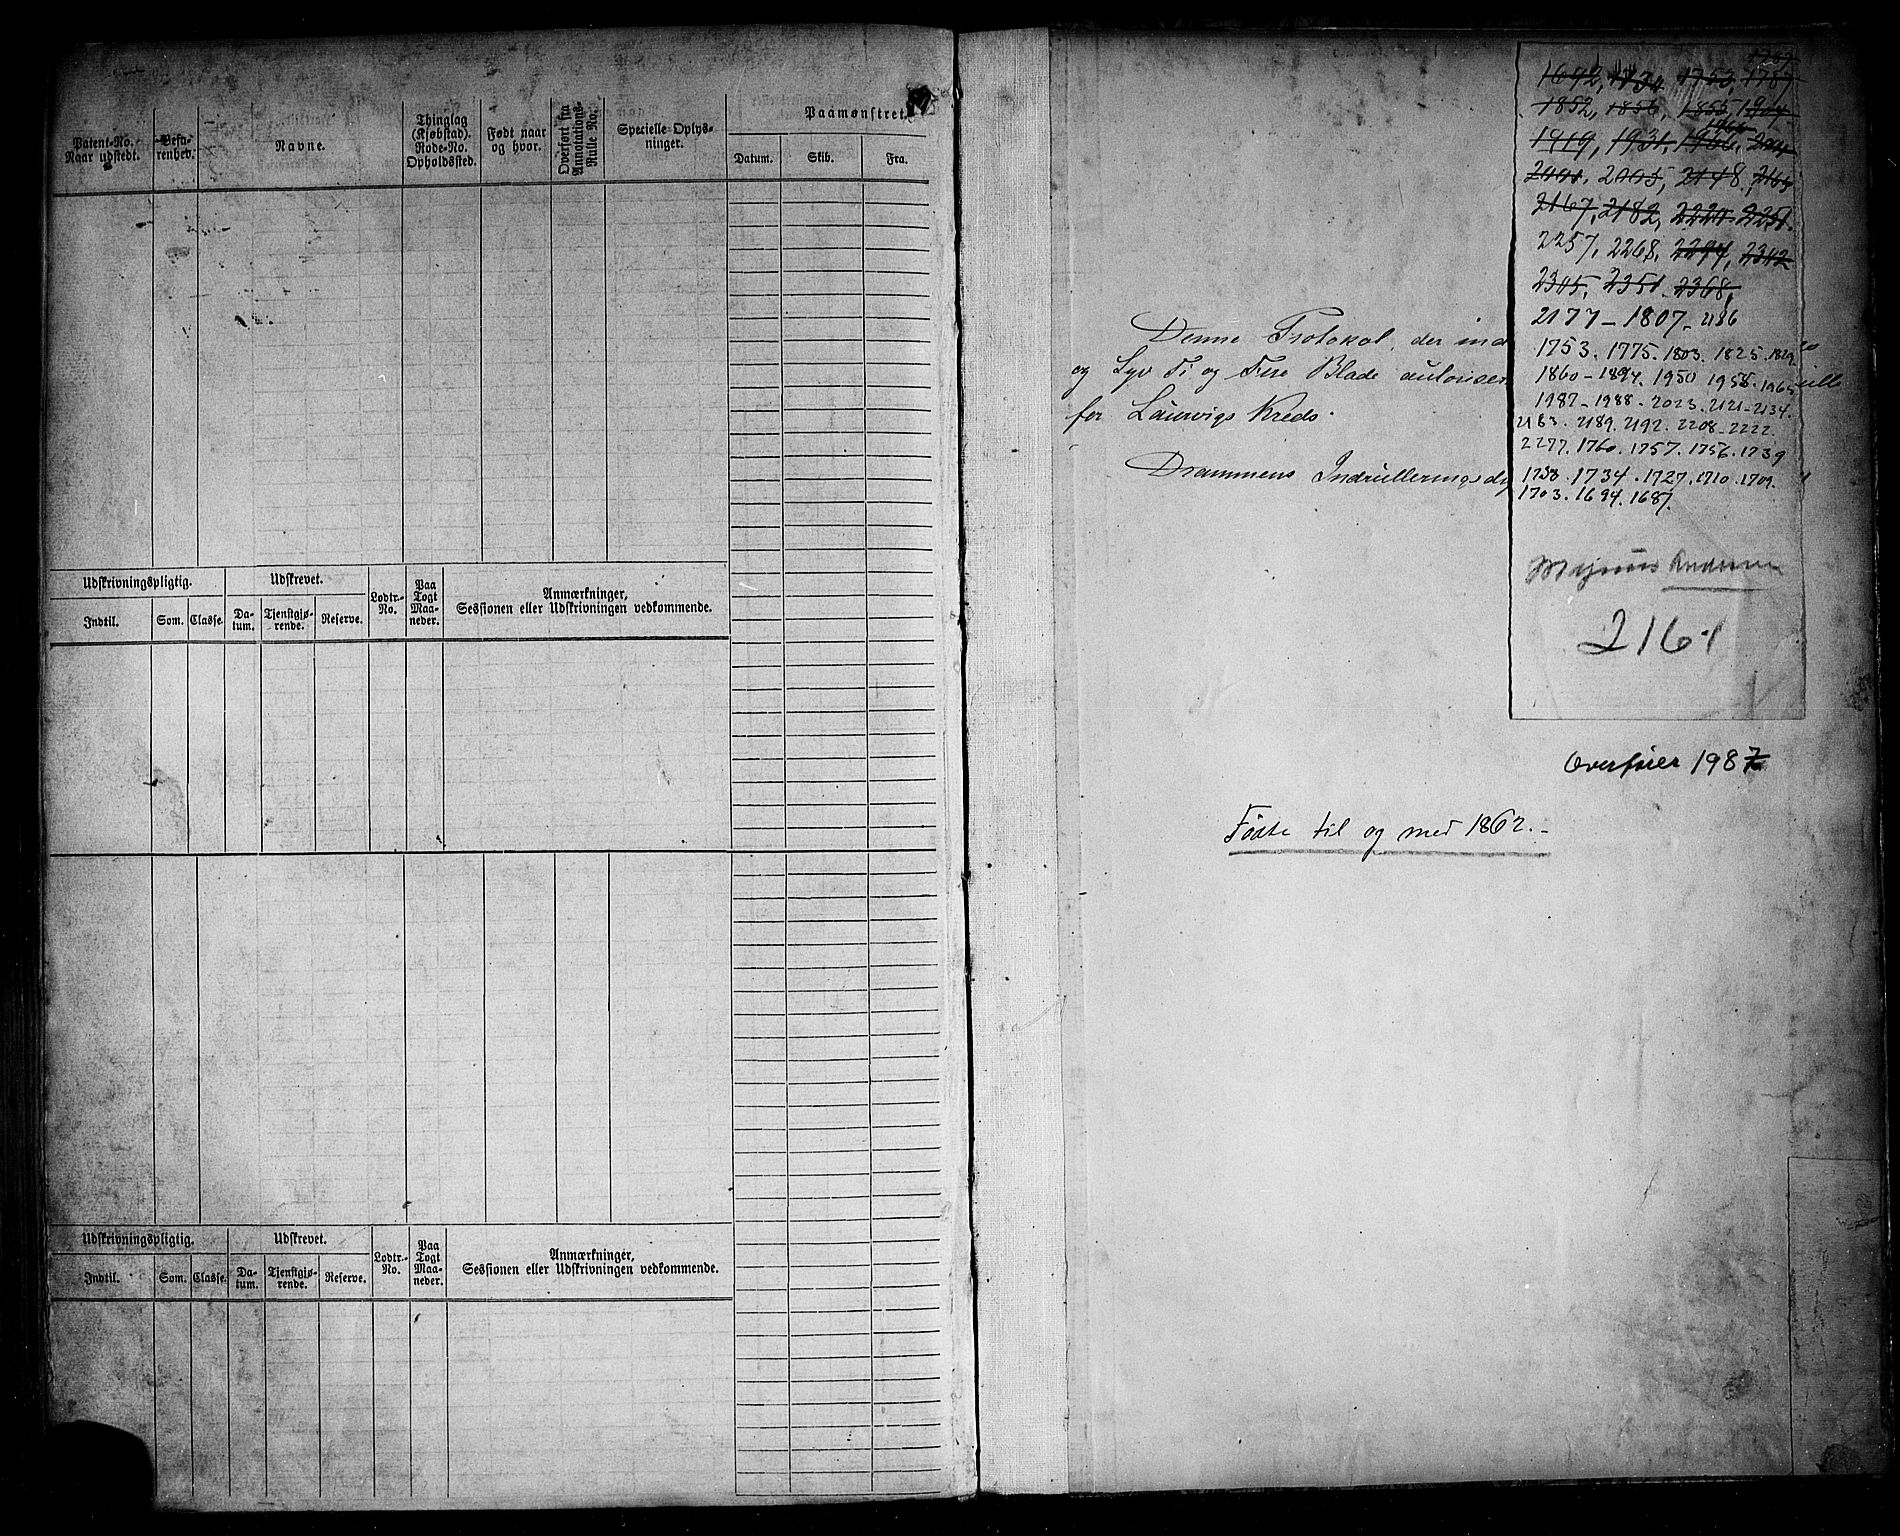 Patent-No.
Naar udstedt.
Befa-
renhed.
Navne.
Thinglag
(Kjøbstad).
Rode-No.
Opholdssted.
Født naar
og hvor.
Overført fra
Annotations-
Rulle No.
Specielle Oplys-
ninger.
Paamønstret.
Datum.
Skib.
Fra.
Udskrivningspligtig.
Udskrevet.
Lodtr.-
No.
Paa
Togt
Maa-
neder.
Anmærkninger,
Sessionen eller Udskrivningen vedkommende.
Indtil.
Som.
Classe.
Da-
tum.
Tjenstgjø-
rende.
Reserve.
Udskrivningspligtig.
Udskrevet.
Lodtr.-
No.
Paa
Togt
Maa-
neder.
Anmærkninger,
Sessionen eller Udskrivningen vedkommende.
Indtil.
Som.
Classe.
Da-
tum.
Tjenstgjø-
rende.
Reserve.
Denne Protokol, der ind
og Syv Ti og Fire Blade autoriser
for Laurvigs Kreds.
Drammens Indrulleringsd
1642, 1734, 1753, 1787
1852, 1856, 1855
1919, 1931, 1966,
2001, 2005, 2148, 2165
2167, 2182, 2224, 2251.
2257, 2268, 2294, 2342
2345, 2351, 2368,
2177 - 1807 - 2186
1753. 1775. 1803. 1825. 1829
1860 - 1894. 1950 1958. 1965
1987 - 1988 - 2023. 2121 - 2134.
2183. 2189. 2192. 2208 - 2222.
2277. 1760. 1757. 1756. 1739
1738. 1734. 1727. 1710. 1709.
1703. 1694. 1687.
Magnus Andersen
2161
Overfører 1987
Fødte til og med 1862.-